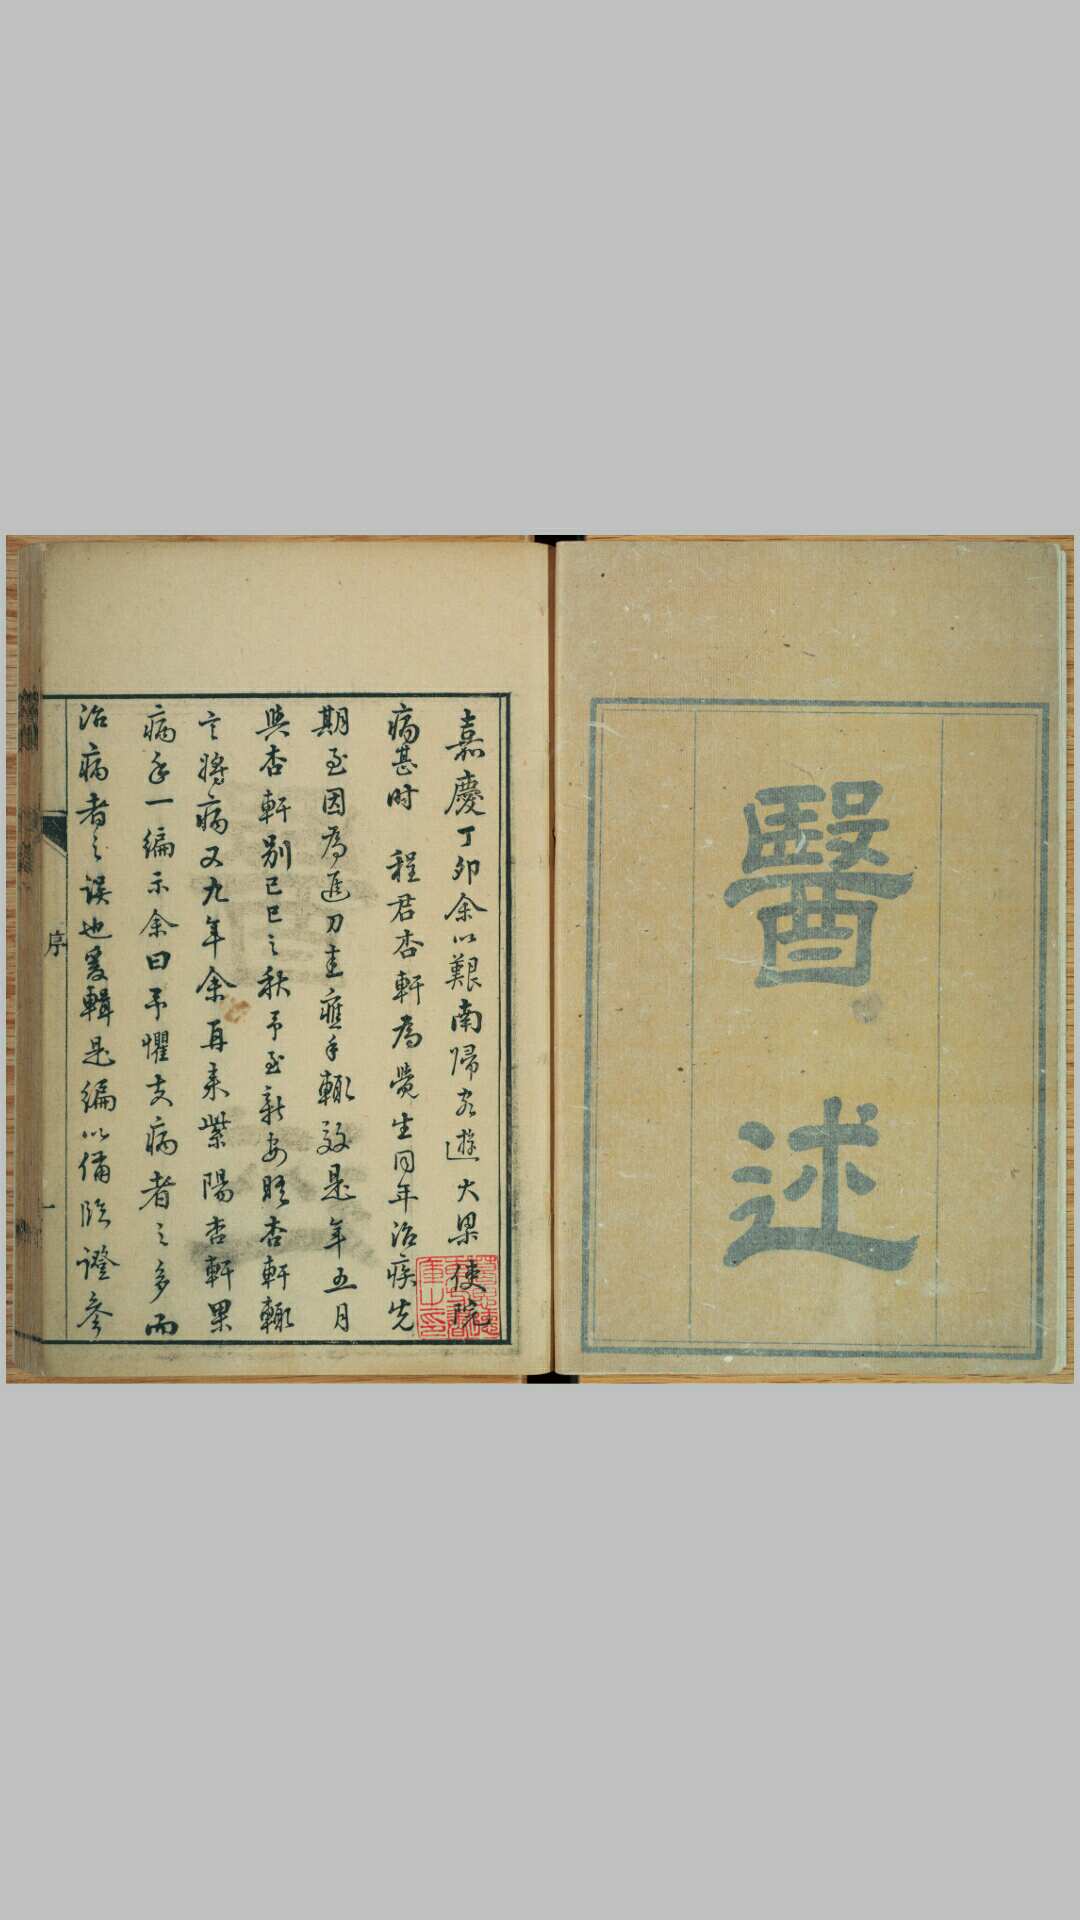 醫述
嘉慶丁卯余以艱南歸客遊大梁使院
病甚时 程君杏軒為覺生同年治疾先
期至因為進刀圭應手輒效是年五月
與杏軒別己巳之秋予至新安晤杏軒輒
言將病又九年余再来紫陽杏軒果
病手一編示余曰予懼夫病者之多而
治病者之误也爰輯是編以備臨證參
序
一